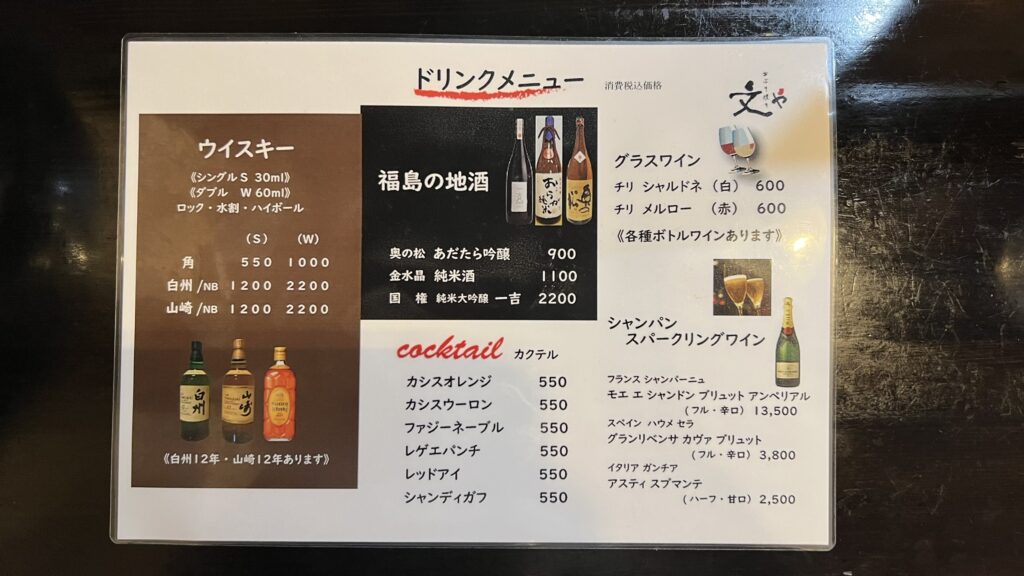 ドリンクメニュー 消費税込価格
文や
ウイスキー
《シングルS 30ml》
《ダブル W 60ml》
ロック・水割・ハイボール
(S) (W)
角 550 1000
白州/NB 1200 2200
山崎/NB 1200 2200
白州
山崎
《白州12年・山崎12年あります》
福島の地酒
奥の松 あだたら吟醸 900
金水晶 純米酒 1100
国権 純米大吟醸 一吉 2200
cocktail カクテル
カシスオレンジ 550
カシスウーロン 550
ファジーネーブル 550
レゲエパンチ 550
レッドアイ 550
シャンディガフ 550
グラスワイン
チリ シャルドネ (白) 600
チリ メルロー (赤) 600
《各種ボトルワインあります》
シャンパン
スパークリングワイン
フランス シャンパーニュ
モエ エ シャンドン ブリュット アンペリアル
(フル・辛口) 13,500
スペイン ハウメ セラ
グランリベンサ カヴァ ブリュット
(フル・辛口) 3,800
イタリア ガンチア
アスティ スプマンテ
(ハーフ・甘口) 2,500